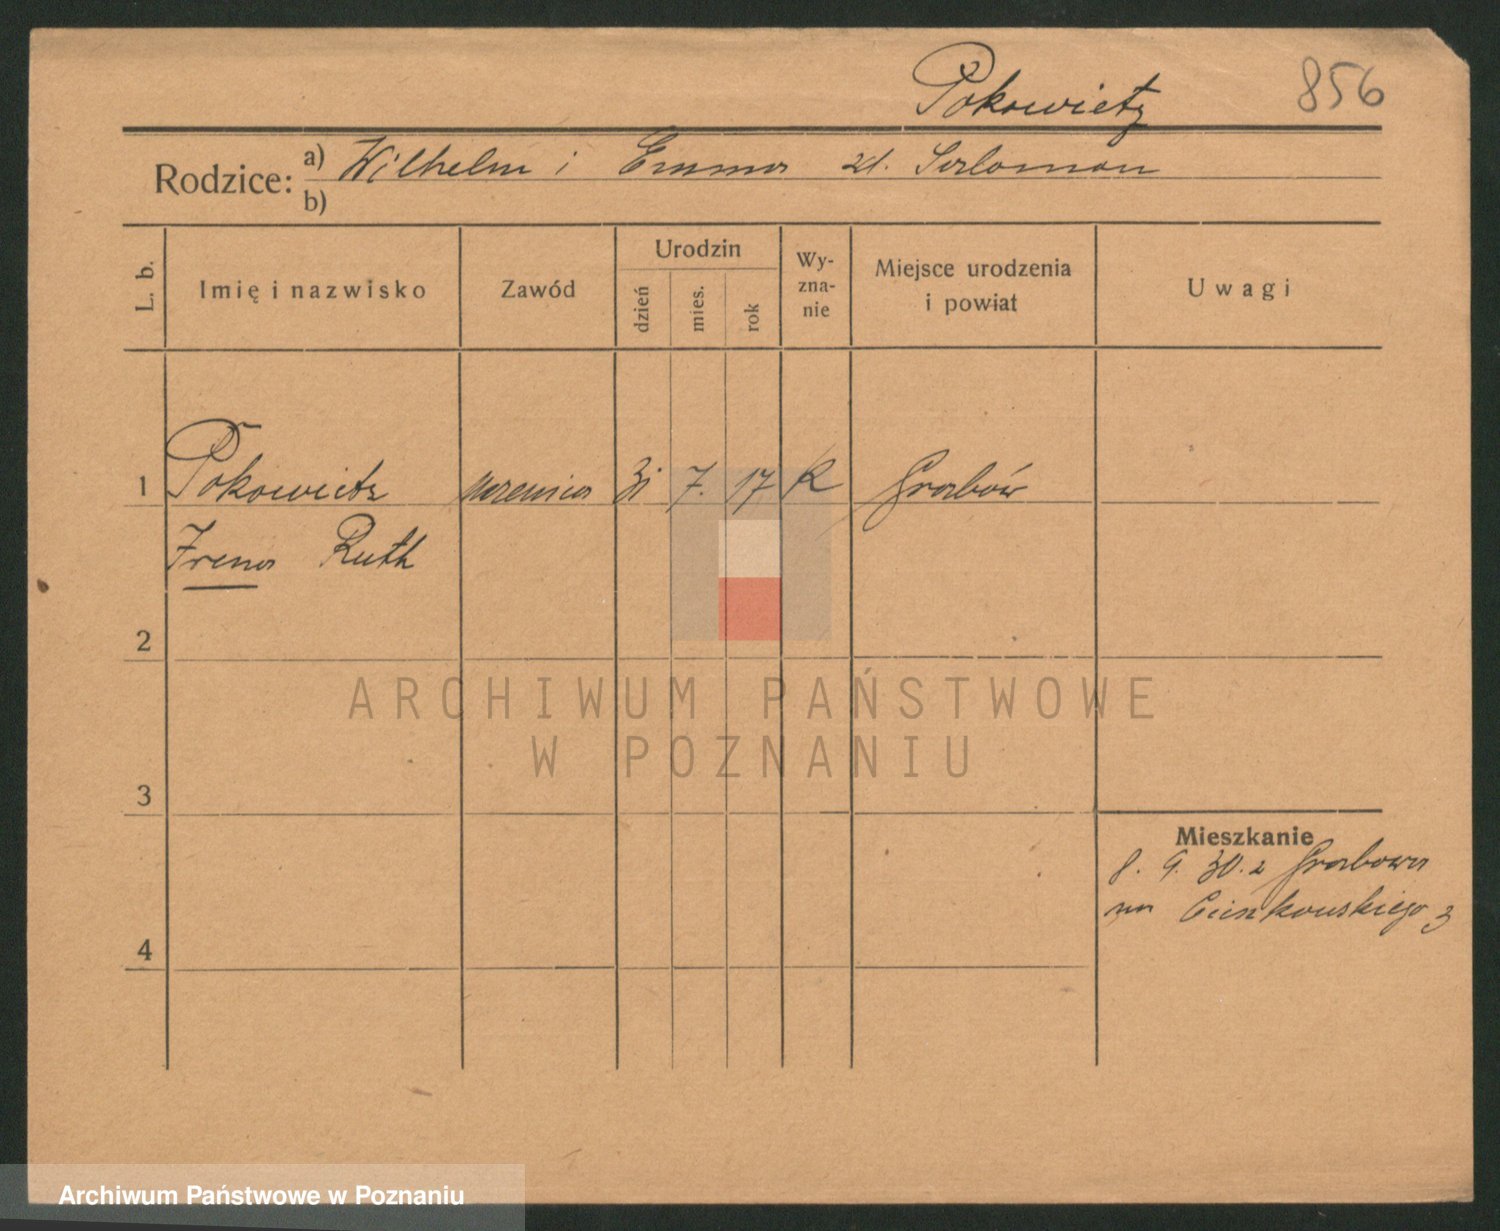 Pokowietz
856
Rodzice: a) Wilhelm i Emma zd. Salomon
b)
L. b.
Imię i nazwisko
Zawód
Urodzin
dzień
mies.
rok
Wy-
zna-
nie
Miejsce urodzenia
i powiat
Uwagi
1 Pokowietz uczenica 31 7. 17 R Grabów
Irena Ruth
2
3
4
Mieszkanie
8. 9. 30. z Grabowa
na 3
ARCHIWUM PAŃSTWOWE
W POZNANIU
Archiwum Państwowe w Poznaniu